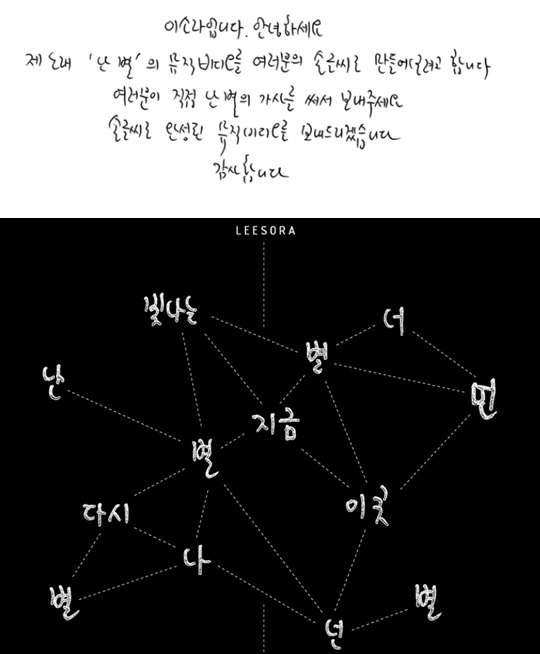 이소라입니다. 안녕하세요
제 노래 '난 별'의 뮤직비디오를 여러분의 손글씨로 만들어보려고 합니다
여러분이 직접 난 별의 가사를 써서 보내주세요
손글씨로 완성된 뮤직비디오를 보내드리겠습니다
감사합니다
LEESORA
빛나는
더
별
난
먼
지금
별
이곳
다시
나
별
별
넌